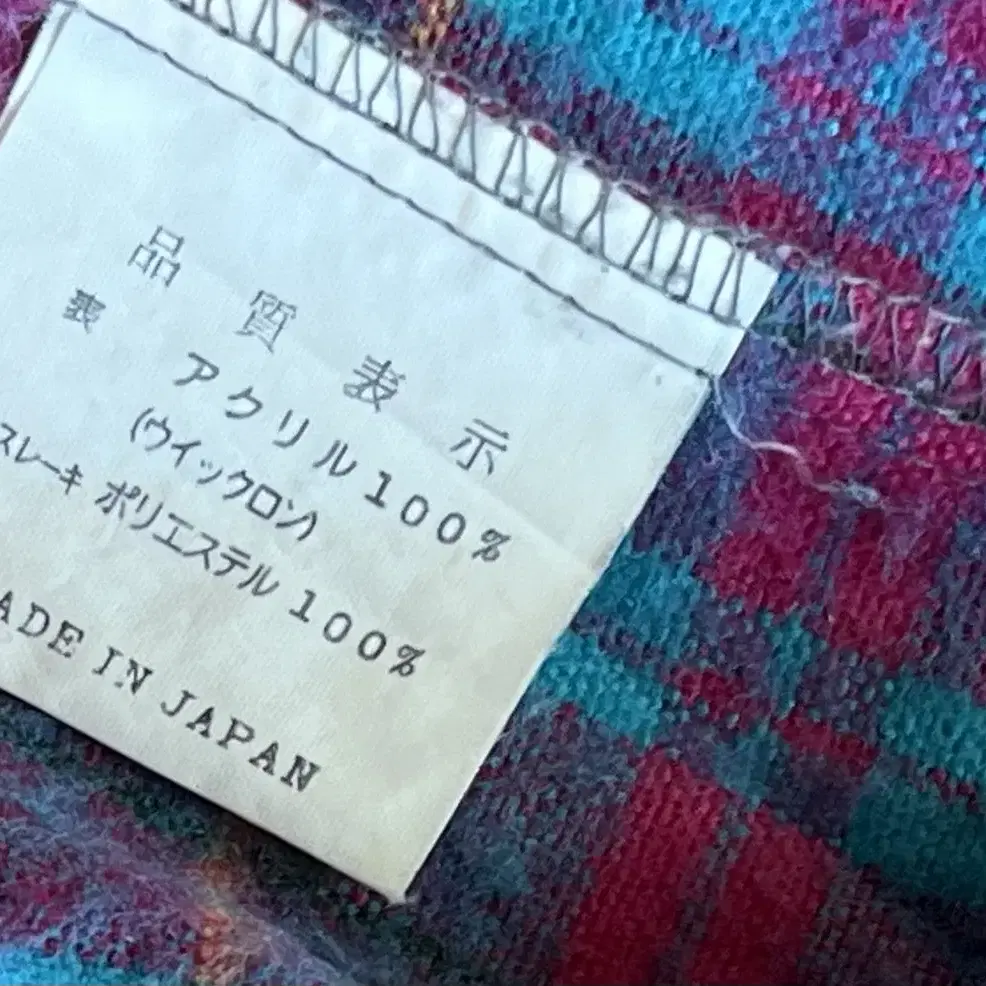 品質表示
表 アクリル100%
(ウイックロン)
スレーキ ポリエステル100%
MADE IN JAPAN